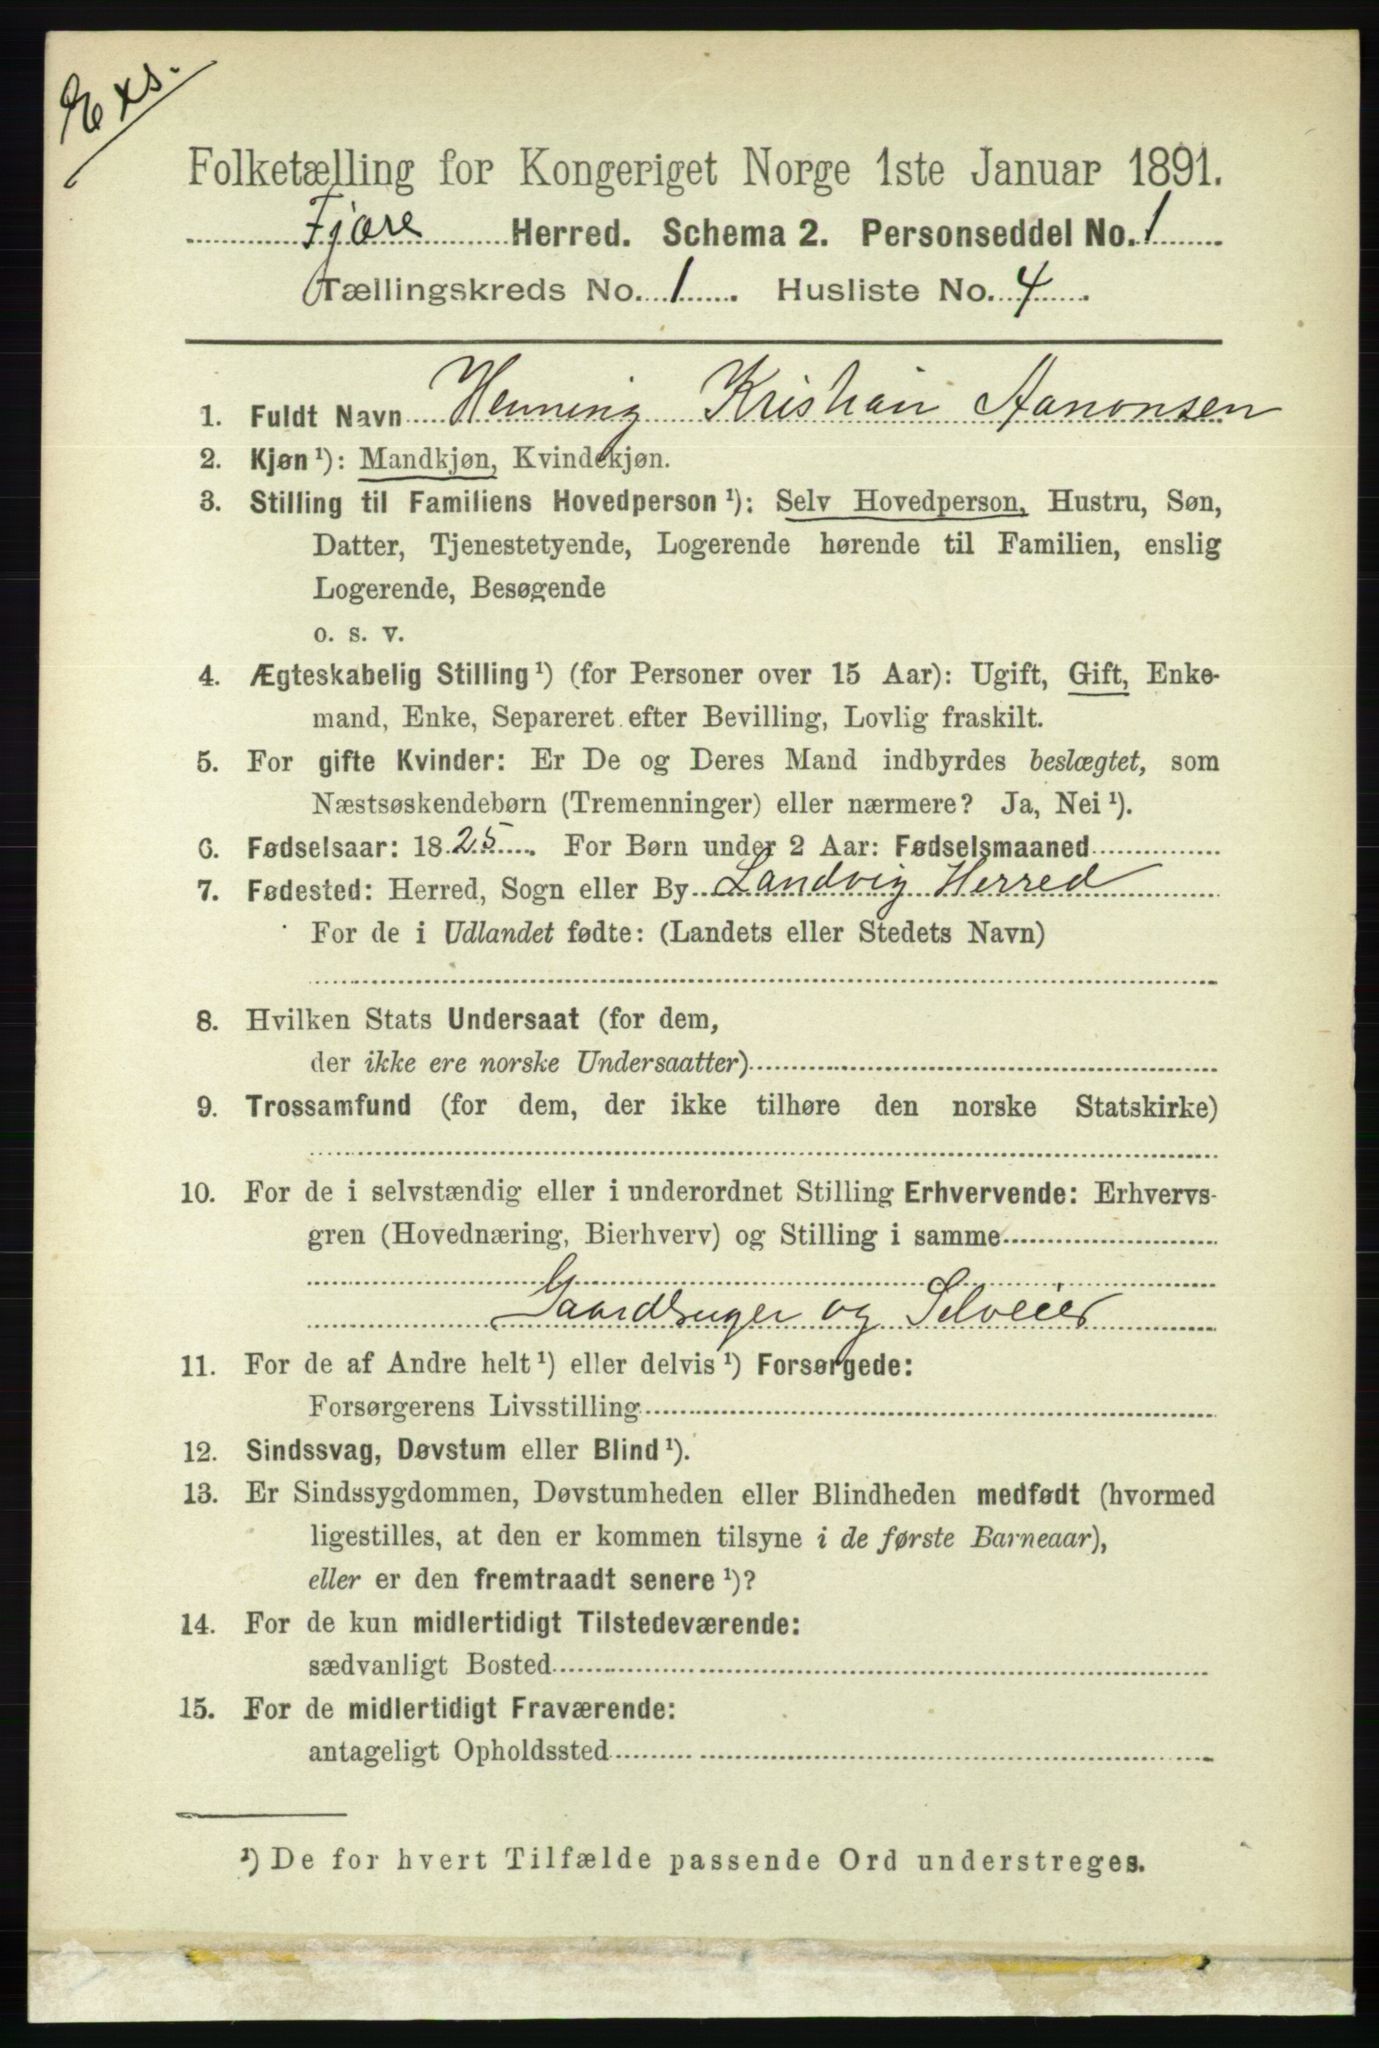 Exs.
Folketælling for Kongeriget Norge 1ste Januar 1891.
Fjære Herred. Schema 2. Personseddel No. 1
Tællingskreds No. 1. Husliste No. 4.
1. Fuldt Navn Henning Kristian Aanonsen
2. Kjøn ¹): Mandkjøn, Kvindekjøn.
3. Stilling til Familiens Hovedperson ¹): Selv Hovedperson, Hustru, Søn,
Datter, Tjenestetyende, Logerende hørende til Familien, enslig
Logerende, Besøgende
o. s. v.
4. Ægteskabelig Stilling ¹) (for Personer over 15 Aar): Ugift, Gift, Enke-
mand, Enke, Separeret efter Bevilling, Lovlig fraskilt.
5. For gifte Kvinder: Er De og Deres Mand indbyrdes beslægtet, som
Næstsøskendebørn (Tremenninger) eller nærmere? Ja, Nei ¹).
6. Fødselsaar: 1825. For Børn under 2 Aar: Fødselsmaaned
7. Fødested: Herred, Sogn eller By Landvig Herred
For de i Udlandet fødte: (Landets eller Stedets Navn)
8. Hvilken Stats Undersaat (for dem,
der ikke ere norske Undersaatter)
9. Trossamfund (for dem, der ikke tilhøre den norske Statskirke)
10. For de i selvstændig eller i underordnet Stilling Erhvervende: Erhvervs-
gren (Hovednæring, Bierhverv) og Stilling i samme
Gaardbruger og Selveier
11. For de af Andre helt ¹) eller delvis ¹) Forsørgede:
Forsørgerens Livsstilling
12. Sindssvag, Døvstum eller Blind ¹).
13. Er Sindssygdommen, Døvstumheden eller Blindheden medfødt (hvormed
ligestilles, at den er kommen tilsyne i de første Barneaar),
eller er den fremtraadt senere ¹)?
14. For de kun midlertidigt Tilstedeværende:
sædvanligt Bosted
15. For de midlertidigt Fraværende:
antageligt Opholdssted
¹) De for hvert Tilfælde passende Ord understreges.